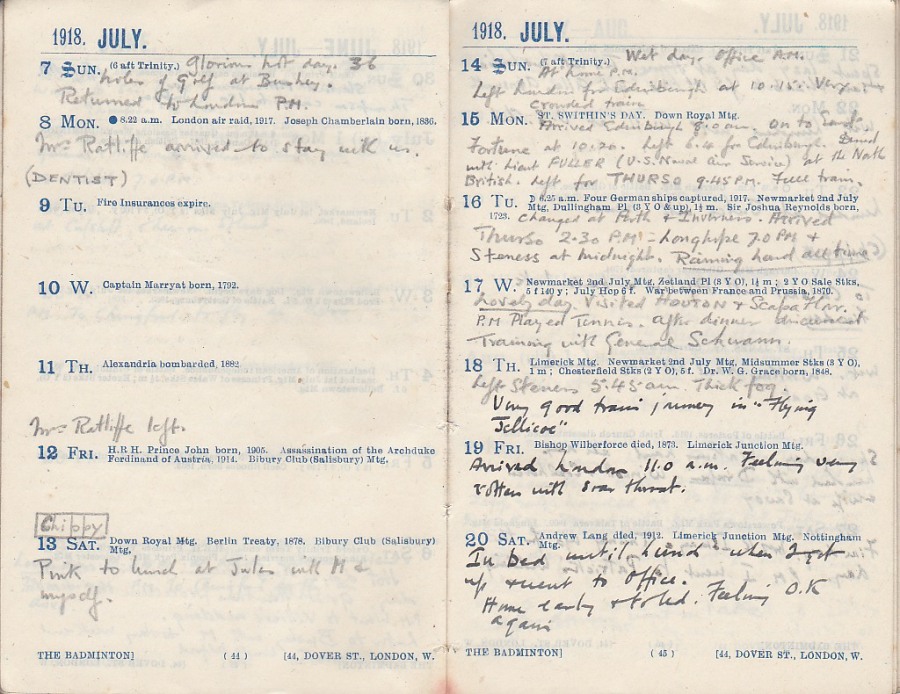 1918. JULY.
7 SUN. (6 aft Trinity.) Glorious hot day. 36
holes of Golf at Bushey.
Returned to London P.M.
8 MON. ●8.22 a.m. London air raid, 1917. Joseph Chamberlain born, 1836.
Mrs Ratliffe arrived to stay with us.
(DENTIST)
9 TU. Fire Insurances expire.
10 W. Captain Marryat born, 1792.
11 TH. Alexandria bombarded, 1882
Mrs Ratliffe left.
12 FRI. H.R.H. Prince John born, 1905. Assassination of the Archduke
Ferdinand of Austria, 1914. Bibury Club (Salisbury) Mtg.
Chippy
13 SAT. Down Royal Mtg. Berlin Treaty, 1878. Bibury Club (Salisbury)
Mtg.
Pink to lunch at Jules with M &
myself.
THE BADMINTON] (44) [44, DOVER ST., LONDON, W.
1918. JULY.
14 SUN. (7 aft Trinity.) Wet day. Office A.M.
At home P.M.
Left London for Edinburgh at 10.15. Very
crowded train
15 MON. ST. SWITHIN'S DAY. Down Royal Mtg.
Arrived Edinburgh 8.0 a.m. on to
Fortune at 10.20. Left 6.4 for Edinburgh. Dined
with Lieut FULLER (U.S. Naval Air Service) at the North
British. Left for THURSO 9.45 P.M. Full train.
16 TU. 6.25 a.m. Four German ships captured, 1917. Newmarket 2nd July
Mtg, Dullingham Pl (3 Y O & up), 1½ m. Sir Joshua Reynolds born,
1723. Changed at Perth & Inverness. Arrived
Thurso 2.30 P.M – Longhope 7.0 PM &
Steness at midnight. Raining hard all time
17 W. Newmarket 2nd July Mtg, Zetland Pl (3 Y O), 1½ m; 2 Y O Sale Stks,
5 f 140 y; July Hcp 6 f. War between France and Prussia, 1870.
Lovely day. Visited HOUTON & Scapa Flow.
P.M Played Tennis. After dinner discussed
Training with General Schwann.
18 TH. Limerick Mtg. Newmarket 2nd July Mtg, Midsummer Stks (3 Y O),
1 m; Chesterfield Stks (2 Y O), 5 f. Dr. W. G. Grace born, 1848.
Left Steness 5.45 am. Thick fog.
Very good train journey in "Flying
Jellicoe"
19 FRI. Bishop Wilberforce died, 1873. Limerick Junction Mtg.
Arrived London 11.0 a.m. Feeling very
rotten with sore throat.
20 SAT. Andrew Lang died, 1912. Limerick Junction Mtg. Nottingham
Mtg.
In bed until lunch when I got
up & went to office.
Home early & to bed. Feeling O.K
again
THE BADMINTON] (45) [44, DOVER ST., LONDON, W.